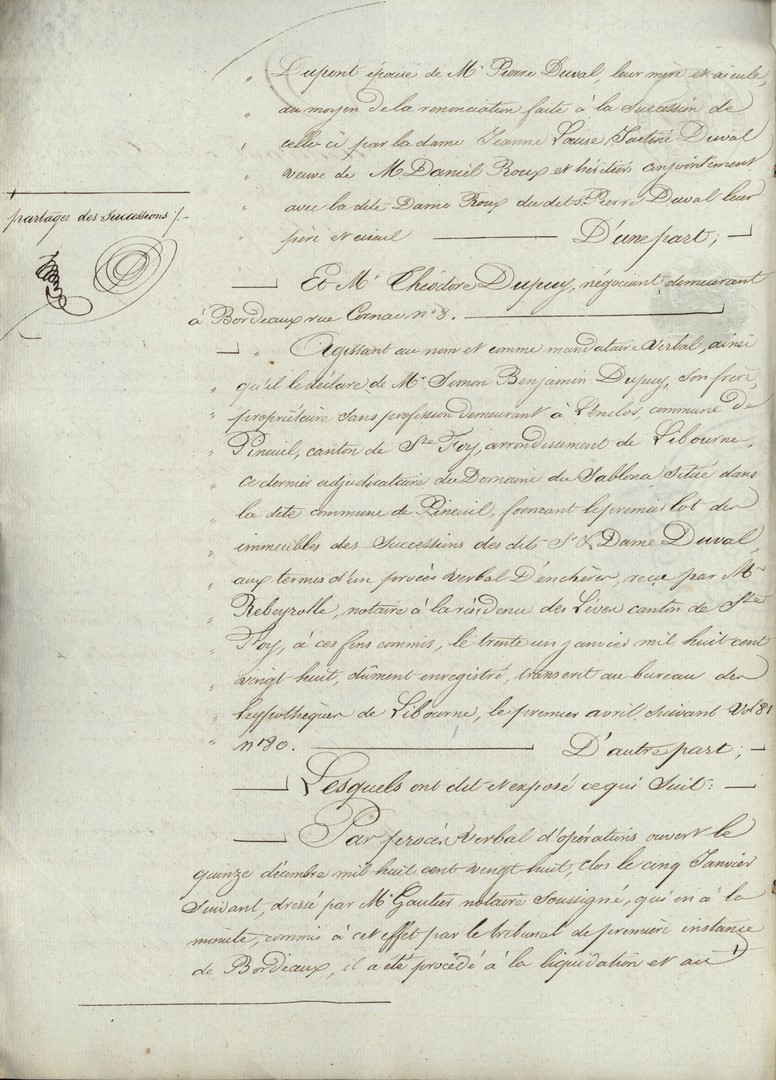 Dupont épouse de Mr Pierre Duval, leur mère et aieule,
au moyen de la renonciation faite à la succession de
celle ci par la dame Jeanne Louise Justine Duval
veuve de M Daniel Roux et héritiers conjointement
avec la dite Dame Roux du dit Sr Pierre Duval leur
père et aieul ——— D'une part; —
— Et Mr Théodore Dupuy, négociant demeurant
à Bordeaux rue Cornac no 8. ———
— Agissant au nom et comme mandataire verbal, ainsi
qu'il le déclare de Mr Simon Benjamin Dupuy, son frère,
propriétaire sans profession demeurant à L'enclos, commune de
Pineuil, canton de Ste Foy, arrondissement de Libourne,
ce dernier adjudicataire du Domaine du Sablona situé dans
la dite commune de Pineuil, formant le premier lot des
immeubles des Successions des dits Sr & Dame Duval,
aux termes d'un procès verbal D'enchères, reçu par Me
Rebeyrolle, notaire à la résidence des Lèves canton de Ste
Foy, à ces fins commis, le trente un janvier mil huit cent
vingt huit, dûment enregistré, transcrit au bureau des
hypothèques de Libourne, le premier avril suivant Vol 81
no 80. ——— D'autre part; —
— Lesquels ont dit et exposé ce qui suit: —
— Par procès verbal d'opérations ouvert le
quinze décembre mil huit cent vingt huit, clos le cinq Janvier
suivant, dressé par Me Gautier notaire soussigné, qui en a la
minute, commis à cet effet par le tribunal de première instance
de Bordeaux, il a été procédé à la liquidation et au
partages des successions /-